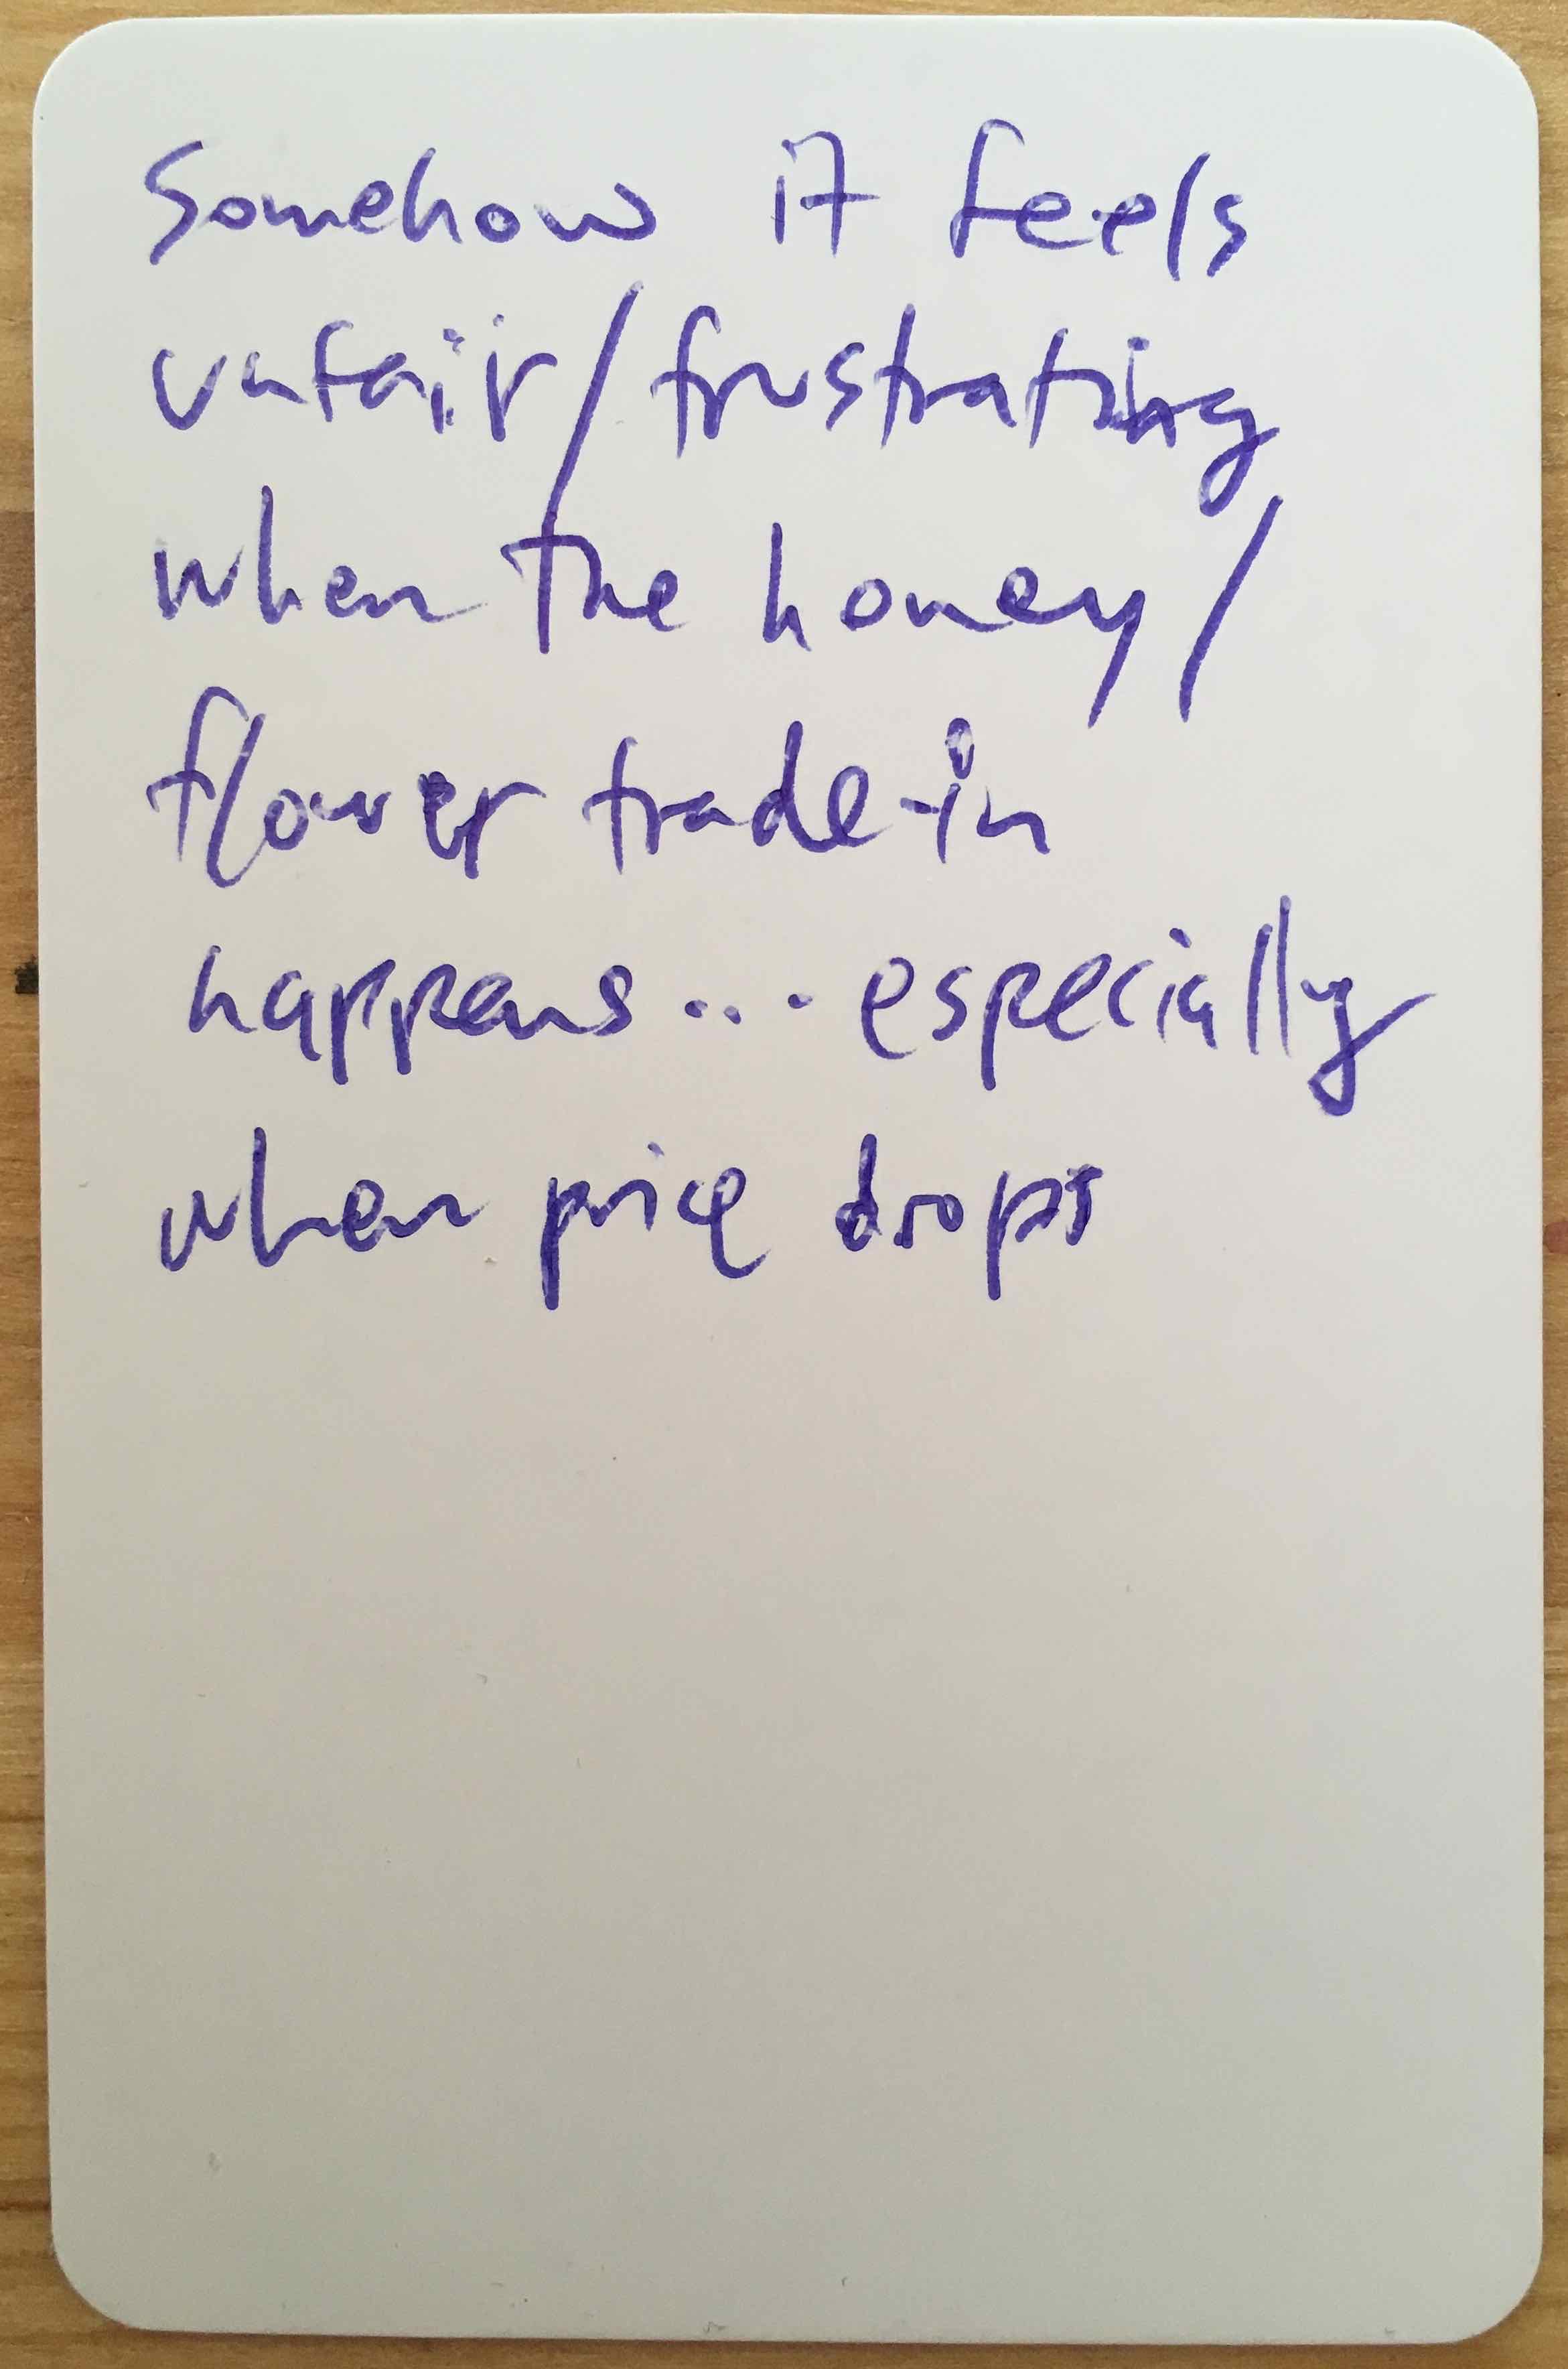 Somehow it feels
unfair/frustrating
when the honey/
flower trade-in
happens... especially
when price drops